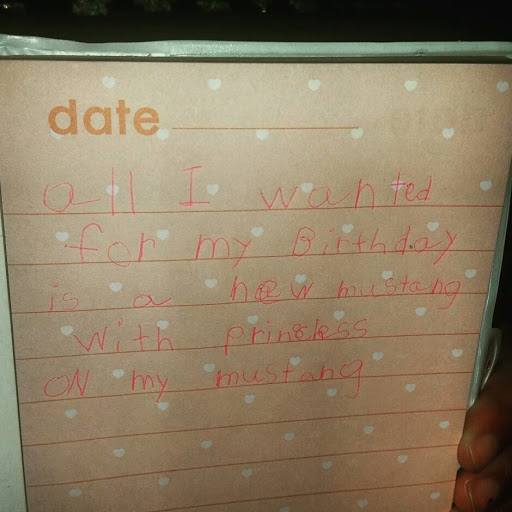 date
all I wanted
for my Birthday
is a new mustang
with princess
ON my mustang